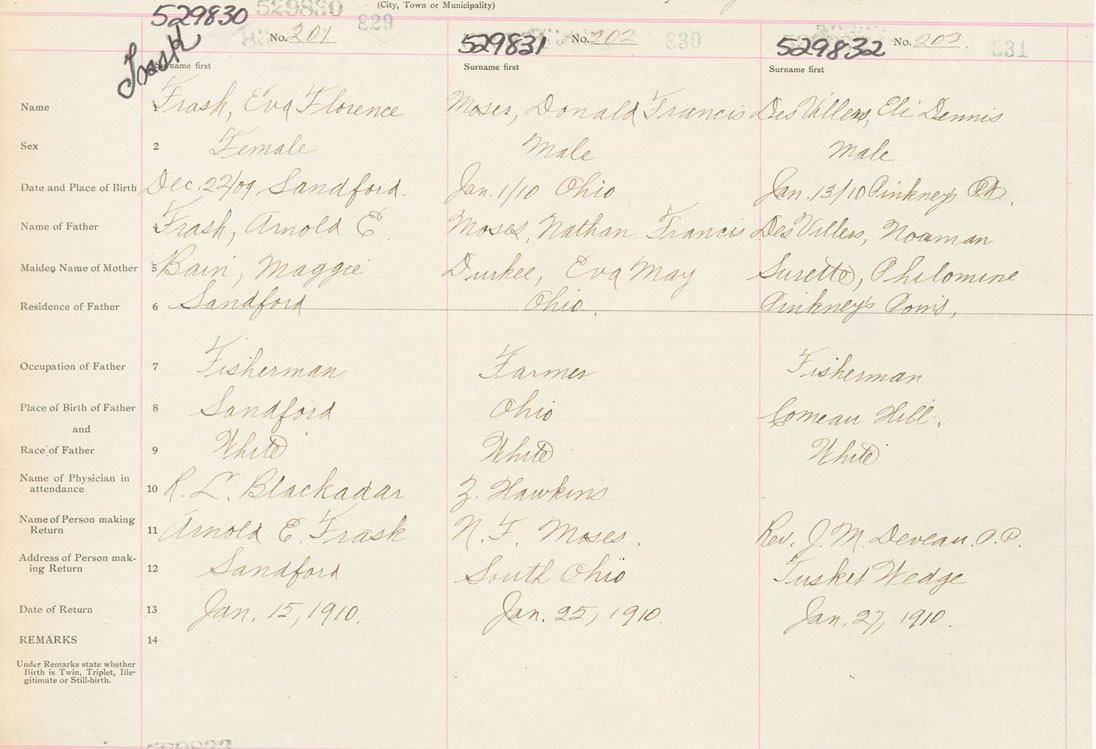 (City, Town or Municipality)
529830 529830 829
Trask
No. 201
529831 No. 202 830
529832 No. 203. 831
Surname first
Surname first
Surname first
Name 1 Trask, Eva Florence Moses, Donald Francis DesVillers, Eli Dennis
Sex 2 Female Male Male
Date and Place of Birth Dec. 22/09 Sandford. Jan. 1/10 Ohio Jan. 13/10 Pinkneys Pt.
Name of Father 4 Trask, Arnold E. Moses, Nathan Francis DesVillers, Norman
Maiden Name of Mother 5 Bain, Maggie Durkee, Eva May Surette, Philomine
Residence of Father 6 Sandford Ohio. Pinkneys
Occupation of Father 7 Fisherman Farmer Fisherman
Place of Birth of Father 8 Sandford Ohio Comeau Hill.
and
Race of Father 9 White White White
Name of Physician in
attendance 10 R. L. Blackadar Z. Hawkins
Name of Person making
Return 11 Arnold E. Trask N. F. Moses. Rev. J. M. Deveau. P.P.
Address of Person mak-
ing Return 12 Sandford South Ohio Tusket Wedge
Date of Return 13 Jan. 15, 1910. Jan. 25, 1910. Jan. 27, 1910.
REMARKS 14
Under Remarks state whether
Birth is Twin, Triplet, Ille-
gitimate or Still-birth.